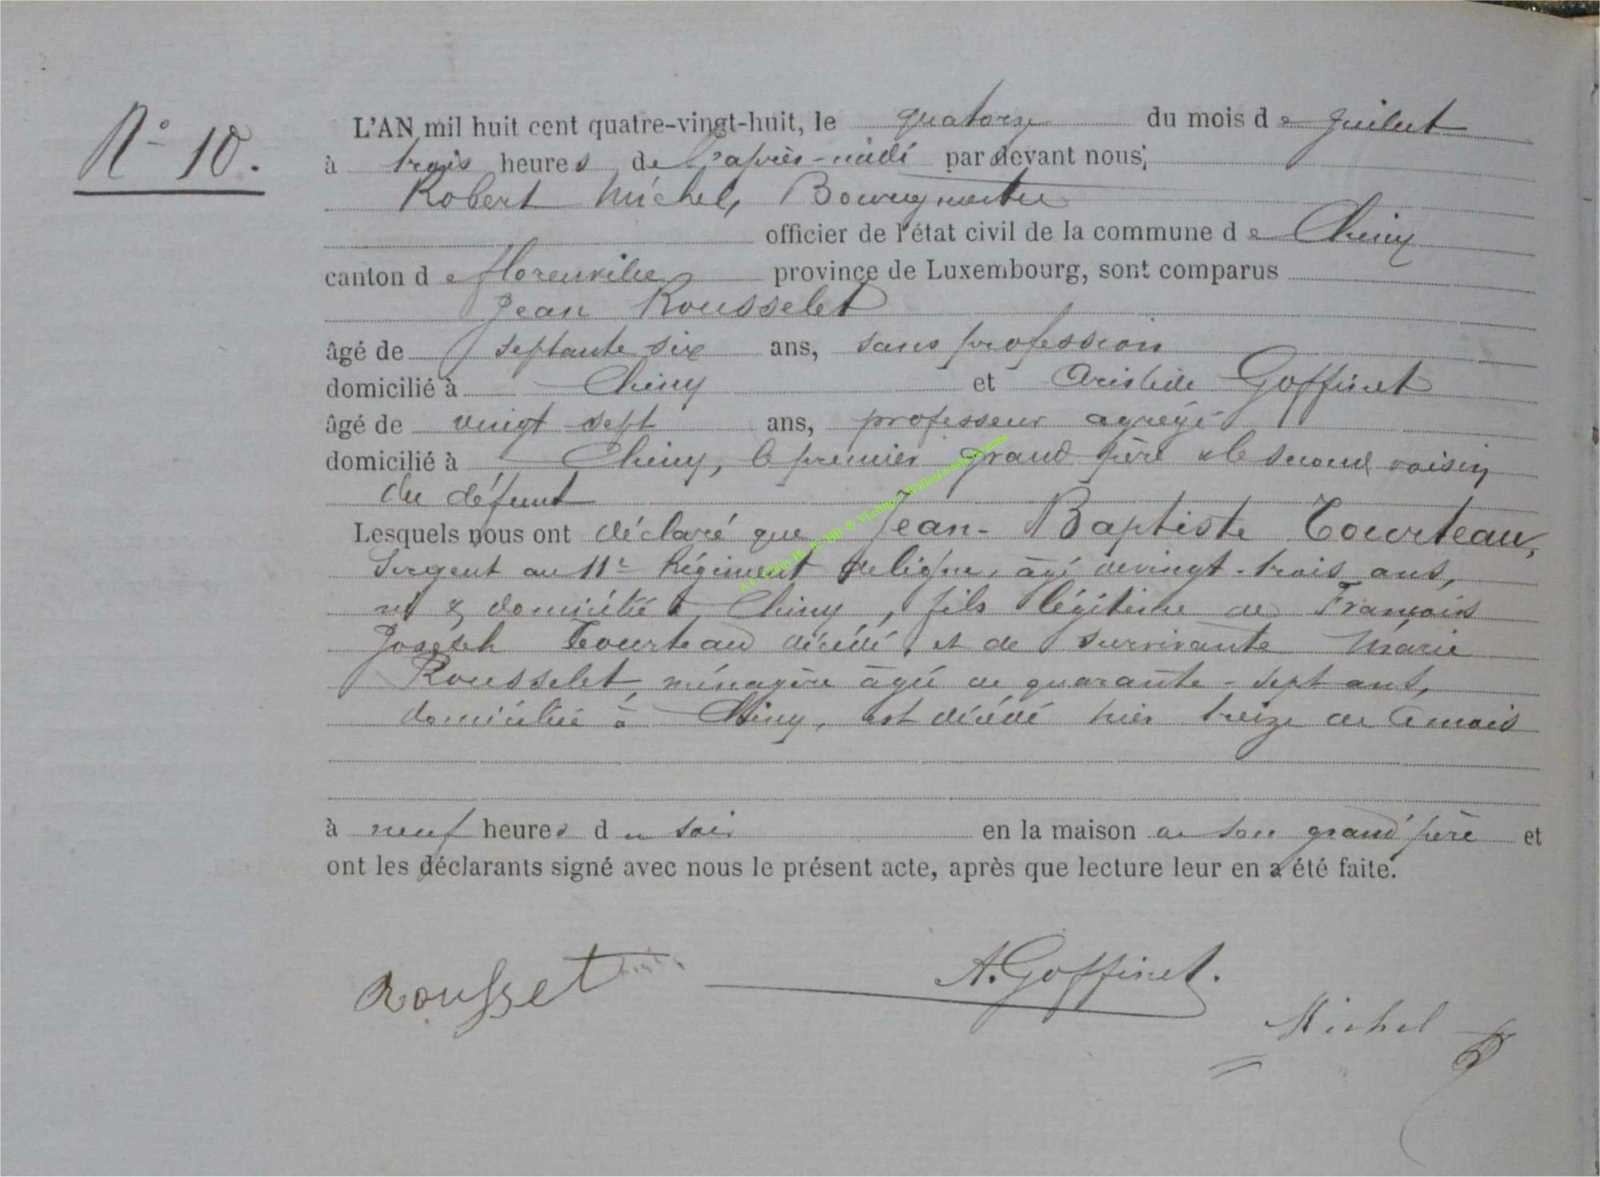 N° 10.
L'AN mil huit cent quatre-vingt-huit, le quatorze du mois de Juillet
à trois heures de l'après-midi par devant nous,
Robert Michel, Bourgmestre
officier de l'état civil de la commune de Chiny
canton de Florenville province de Luxembourg, sont comparus
Jean Rousselet
âgé de septante six ans, sans profession
domicilié à Chiny et Aristide Goffinet
âgé de vingt sept ans, professeur agrégé
domicilié à Chiny, le premier grand père & le second voisin
du défunt
Lesquels nous ont déclaré que Jean-Baptiste Tourteau,
Sergent au 11e Régiment de ligne, âgé de vingt-trois ans,
né & domicilié à Chiny, fils légitime de François
Joseph Tourteau décédé, et de survivante Marie
Rousselet, ménagère âgée de quarante-sept ans,
domiciliée à Chiny, est décédé hier treize de ce mois
à neuf heures du soir en la maison de son grand'père et
ont les déclarants signé avec nous le présent acte, après que lecture leur en a été faite.
Rousset
A. Goffinet.
Michel